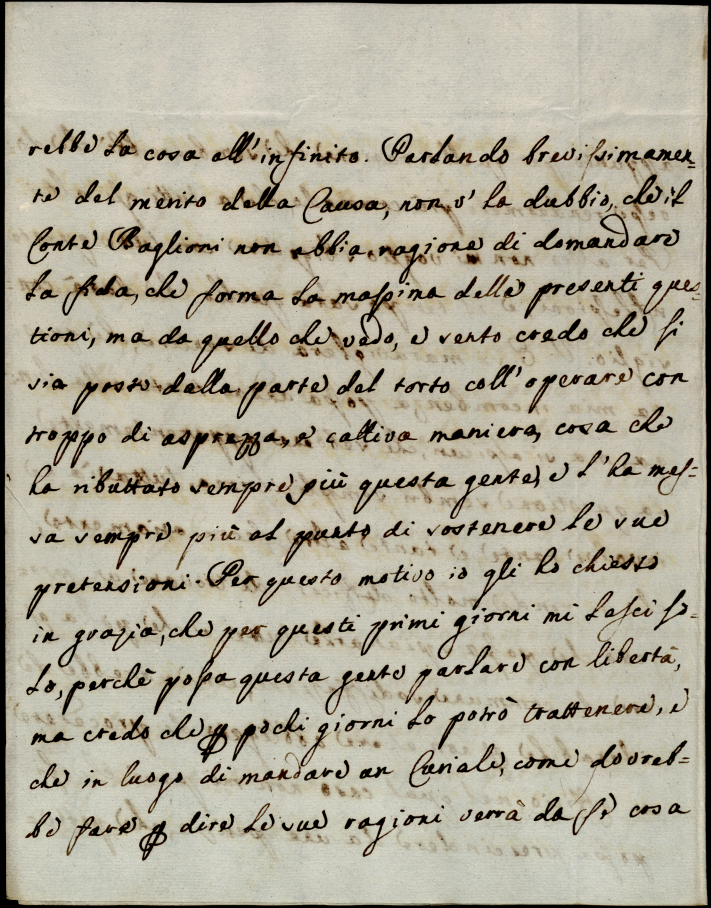 rebbe la cosa all'infinito. Parlando brevissimamen=
te del merito della Causa, non v'ha dubbio, che il
Conte Baglioni non abbia ragione di domandare
la fida, che forma la massima delle presenti ques=
tioni, ma da quello che vedo, e sento credo che si
sia posto dalla parte del torto coll'operare con
troppo di asprezza, e cattiva maniera, cosa che
ha ributtato sempre più questa gente, e l'ha mes=
sa sempre più al punto di sostenere le sue
pretensioni. Per questo motivo io gli ho chiesto
in grazia, che per questi primi giorni mi lasci so=
lo, perchè possa questa gente parlare con libertà,
ma credo che ꝑ pochi giorni lo potrò trattenere, e
che in luogo di mandare un Curiale, come dovreb=
be fare ꝑ dire le sue ragioni verrà da sè cosa